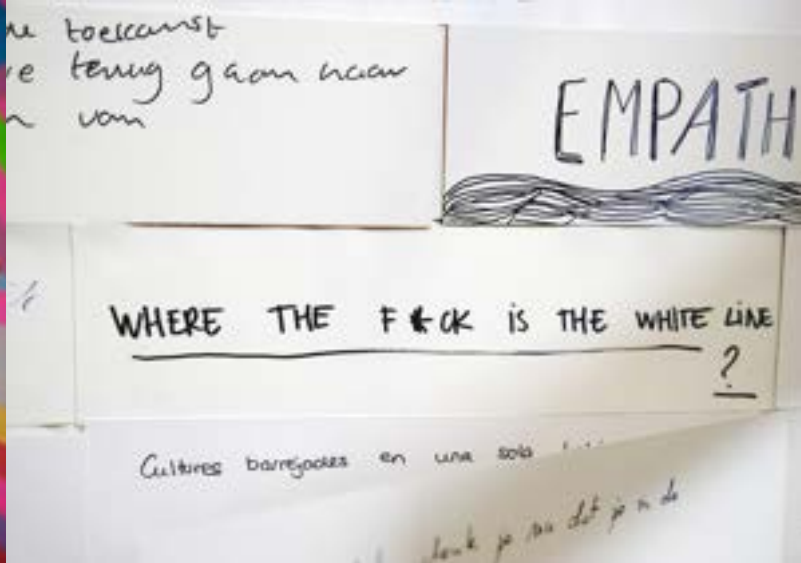 toekomst
terug gaan naar
van
EMPATH
WHERE THE F*CK iS THE WHITE LiNE
?
Cultures barrejades en una sola
denk je nu dat je in de